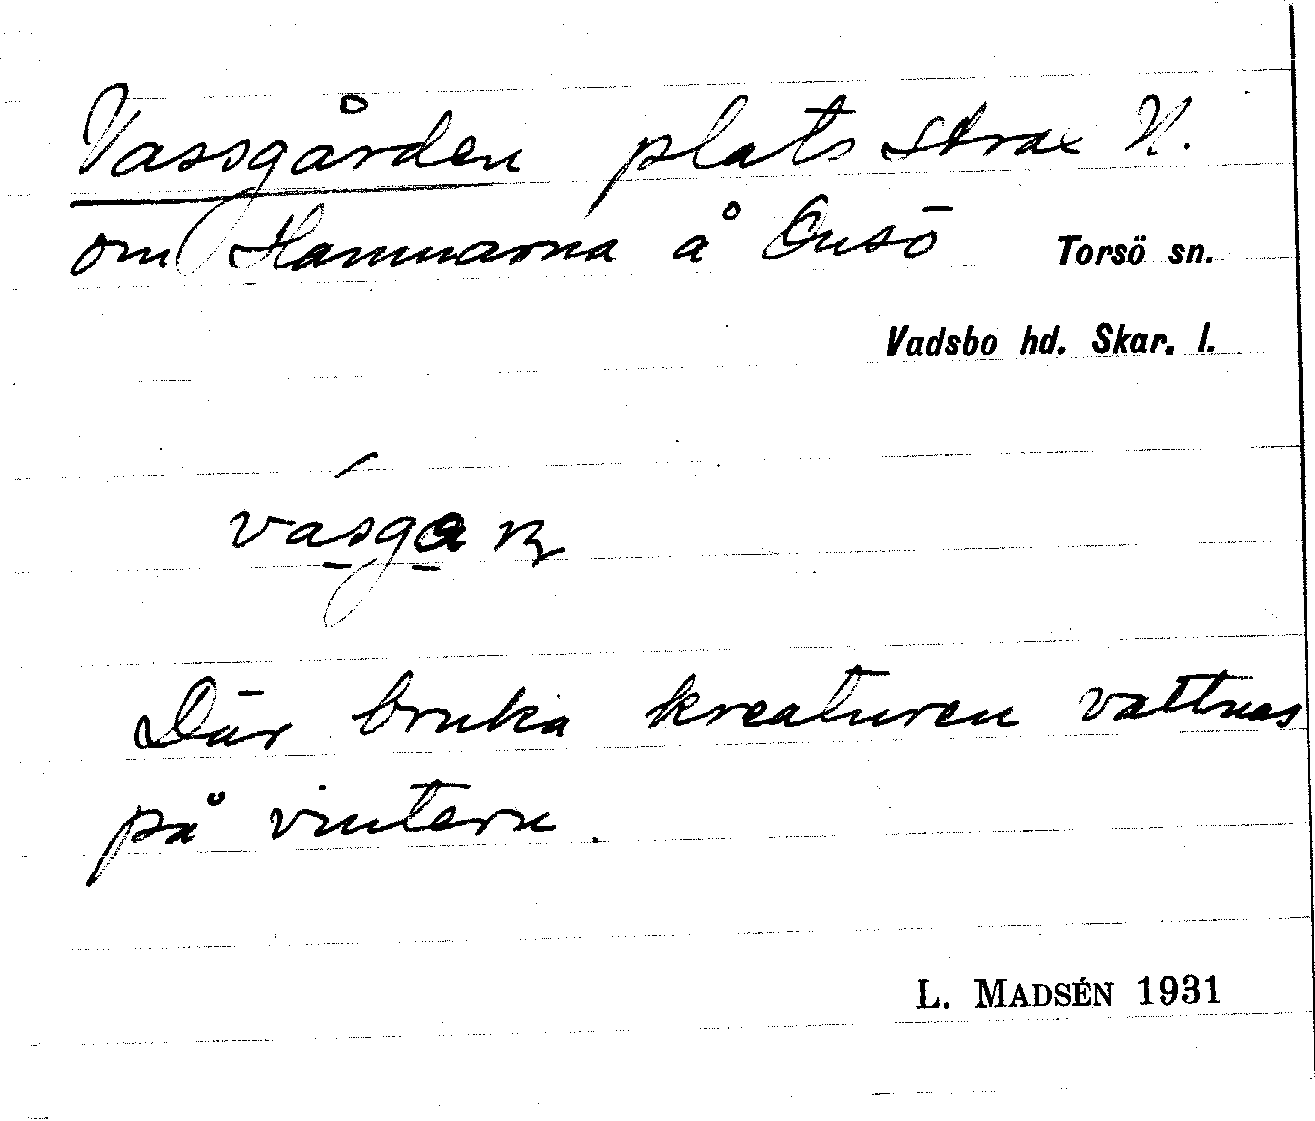 Vassgården plats strax N.
om Hamnarna å Onsö Torsö sn.
Vadsbo hd. Skar. l.
Där bruka kreaturen vattnas
på vintern.
L. MADSÉN 1931